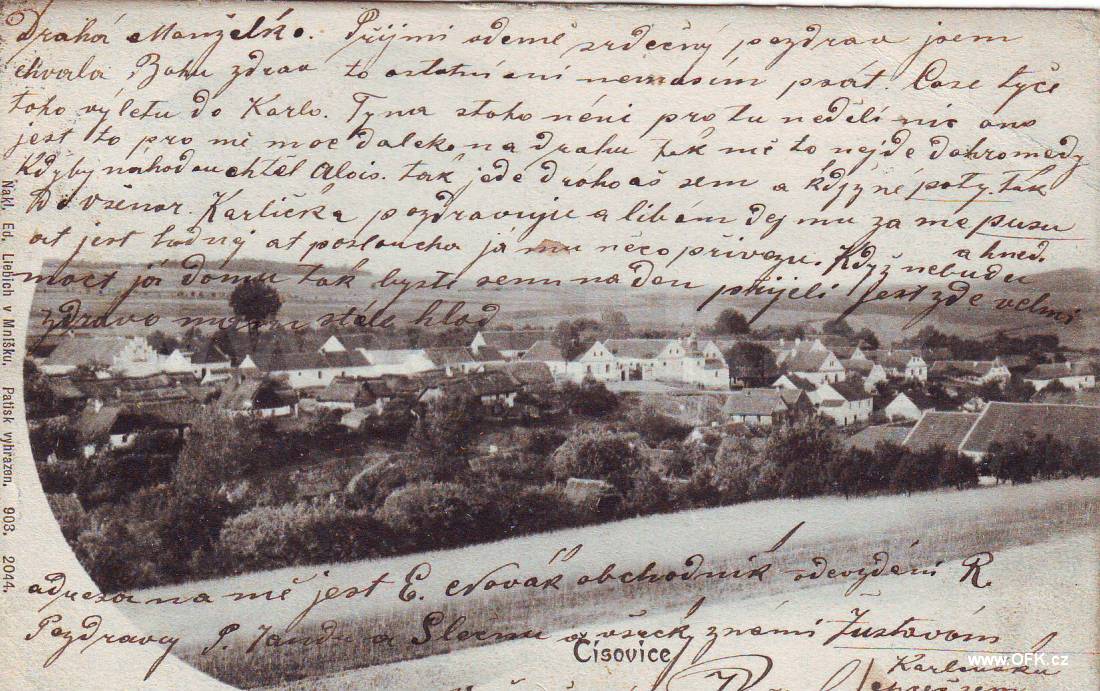 Drahá Manželko. Přijmi odemě srdečný pozdrav jsem
chvala Bohu zdrav to ostatní ani nemusím psát. Cose tyče
toho výletu do Karlo. Tyna stoho néni pro tu neděli nic ono
jest to pro mě moc daleko na drahu tak mě to nejde dohromady
Kdyby nahodou chtěl Alois. tak jede droho až sem a když né poty. tak
Do všenor. Karlíčka pozdravuje a libám dej mu za me pusu
at jest hodnej at poslouchá já mu něco přivezu. Když nebudu
a hned.
moct já domu tak byste semnaden přijeli jest zde velmi
zdravo mám stále hlad
Nakl. Ed. Liebich v Mníšku. Patisk vyhrazen. 903. 2044.
adresa na mě jest E. Novák obchodník odevzdání R.
Pozdravuj P. Jandu a Slečnu a všeck známi Zustavám
Čísovice
www.OFK.cz
Karlíčka